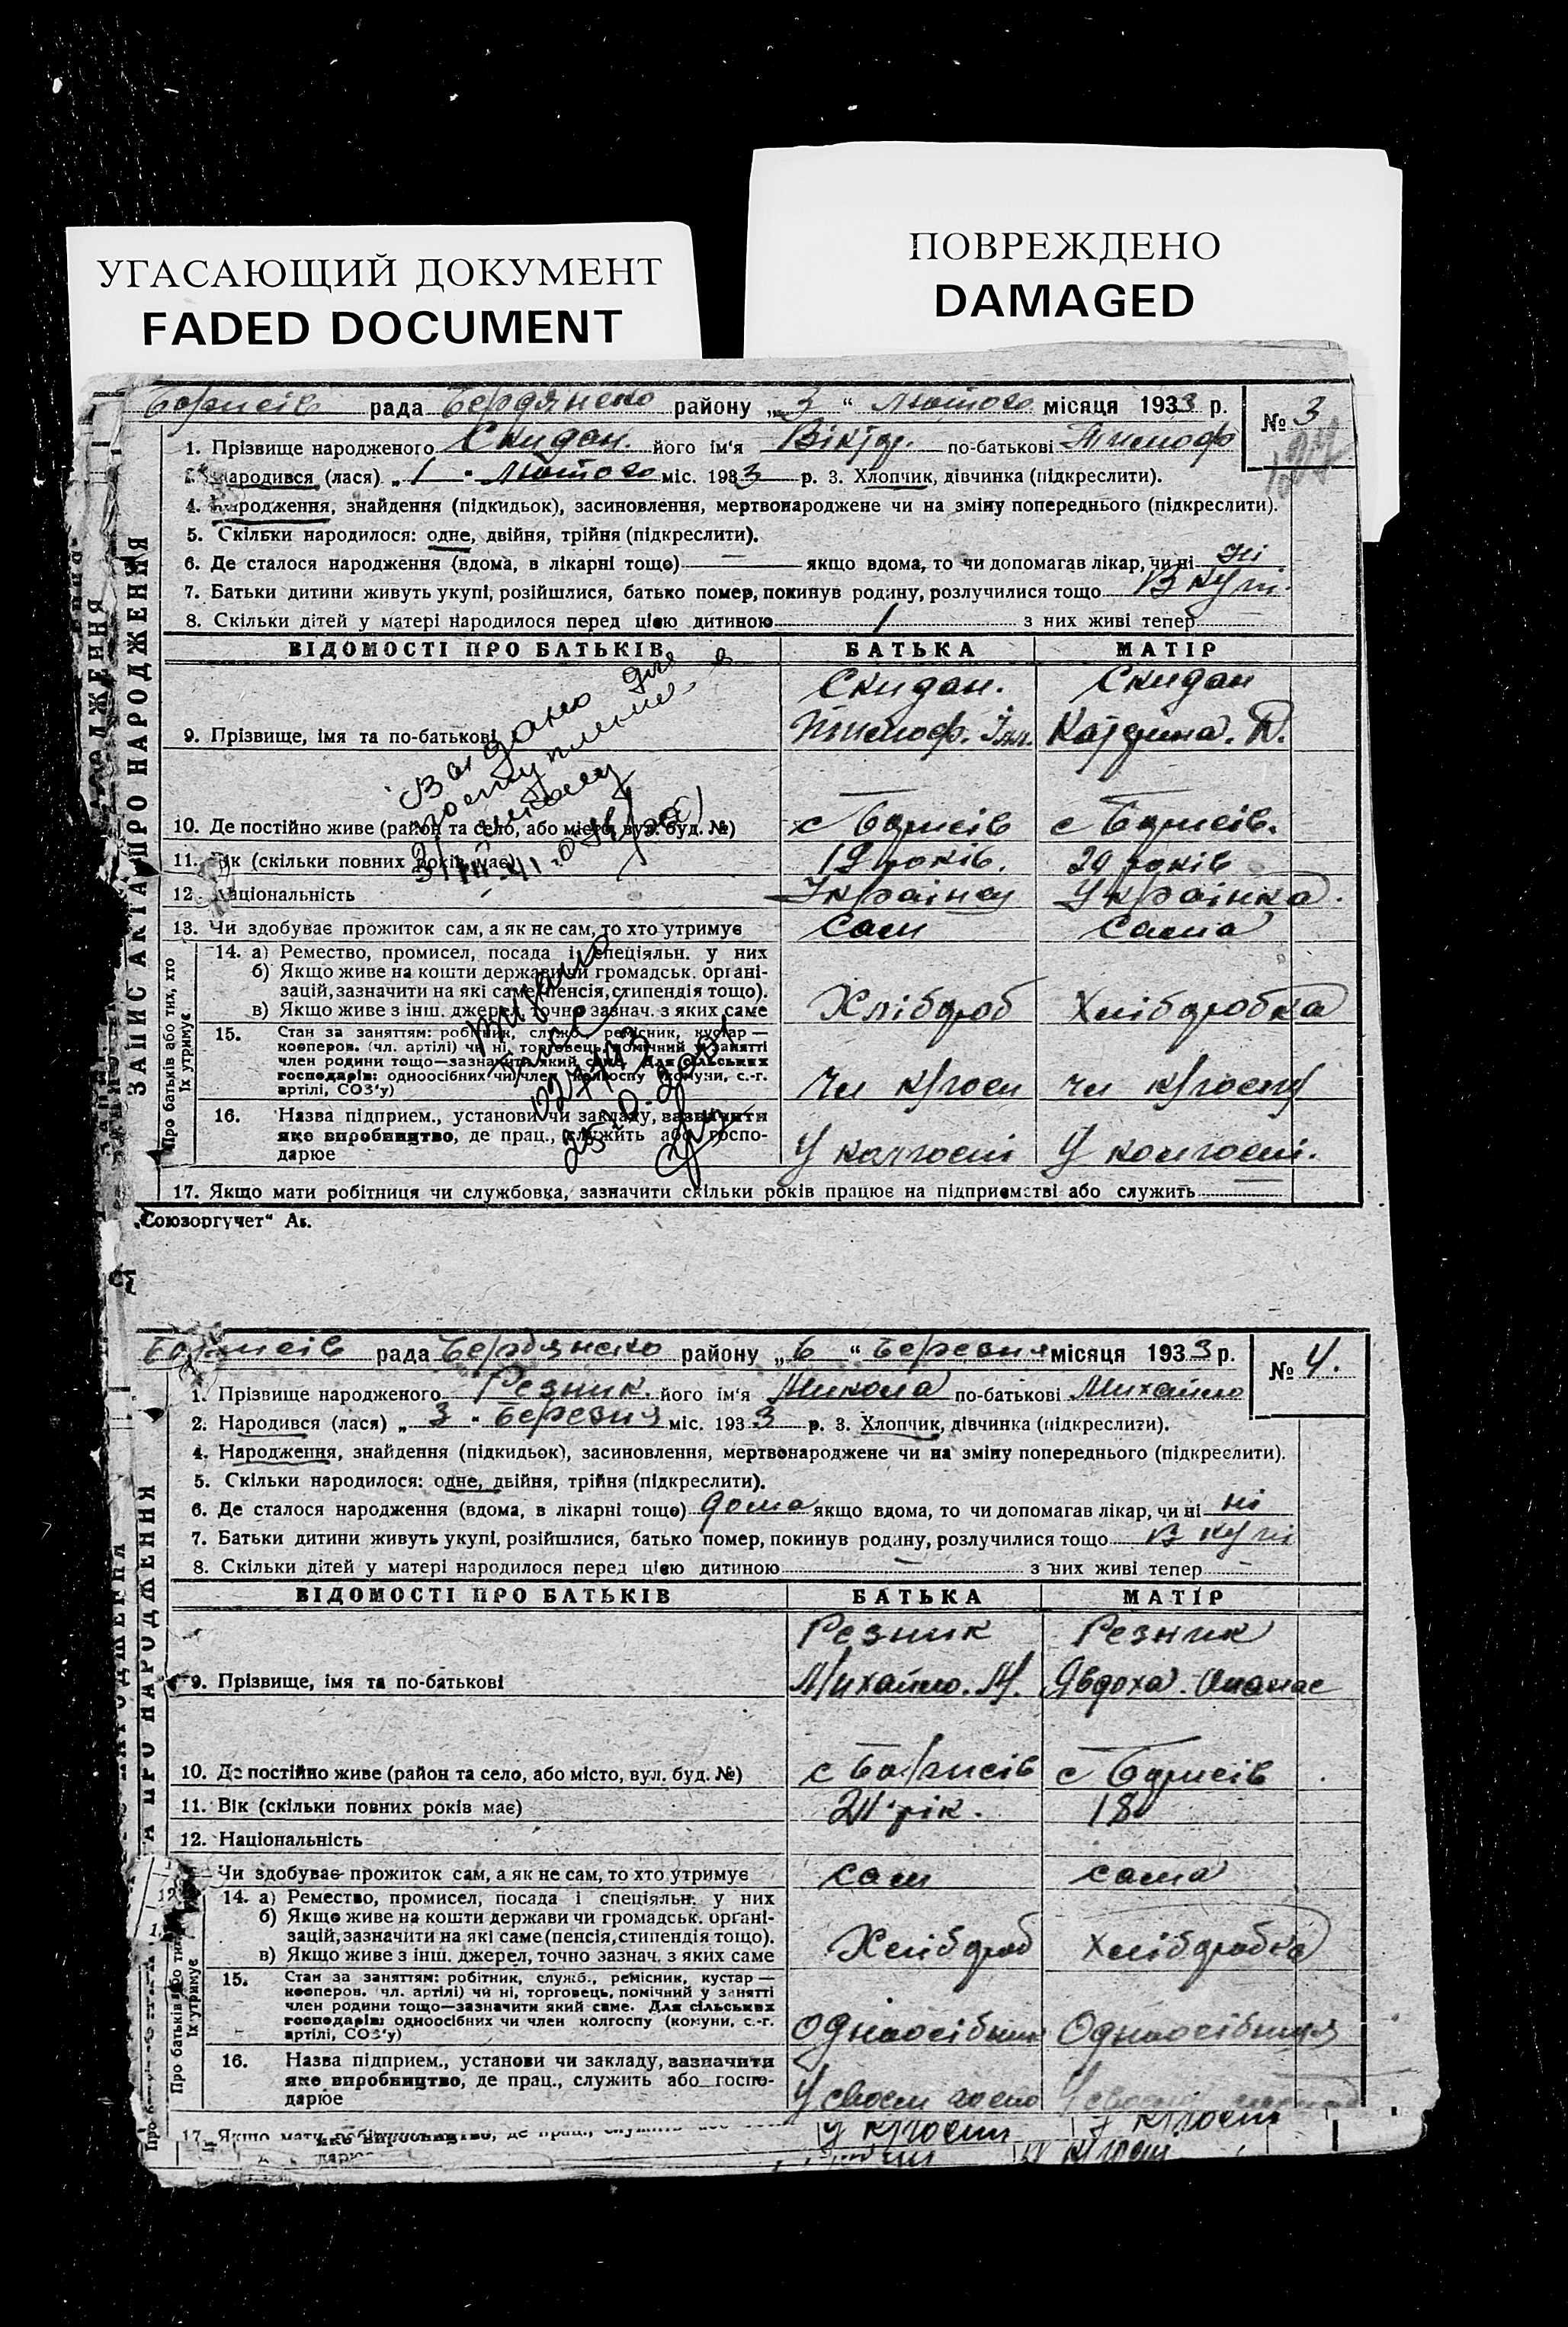 УГАСАЮЩИЙ ДОКУМЕНТ
FADED DOCUMENT
ПОВРЕЖДЕНО
DAMAGED
Борисів рада Бердянсько району „3“ Лютого місяця 1933 р. № 3
1. Прізвище народженого Скидан. його ім'я Віктор. по-батькові Тимоф
народився (лася) „1" Лютого міс. 1933 р. 3. Хлопчик, дівчинка (підкреслити).
4. народження, знайдення (підкидьок), засиновлення, мертвонароджене чи на зміну попереднього (підкреслити).
5. Скільки народилося: одне, двійня, трійня (підкреслити).
6. Де сталося народження (вдома, в лікарні тощо) — якщо вдома, то чи допомагав лікар, чи ні ні
7. Батьки дитини живуть укупі, розійшлися, батько помер, покинув родину, розлучилися тощо В купі.
8. Скільки дітей у матері народилося перед цією дитиною 1 з них живі тепер
ЗАПИС АКТА ПРО НАРОДЖЕННЯ
ВІДОМОСТІ ПРО БАТЬКІВ БАТЬКА МАТІР
Скидан. Скидан
9. Прізвище, імя та по-батькові Тимоф. Катерина. П.
Видано для
поступления в
школу
10. Де постійно живе (район та село, або місто, вул. буд. №) с Борисів с Борисів.
11. Вік (скільки повних років має) 19 років. 20 років
12. національність Українец Українка.
13. Чи здобуває прожиток сам, а як не сам, то хто утримує Сам Сама
Про батьків або тих, хто їх утримує
14. а) Ремество, промисел, посада і спеціяльн. у них
б) Якщо живе на кошти держави чи громадськ. органі-
зацій, зазначити на які саме (пенсія, стипендія тощо).
в) Якщо живе з інш. джерел, точно зазнач. з яких саме Хлібороб Хліборобка
15. Стан за заняттям: робітник, служб., ремісник, кустар —
кооперов. (чл. артілі) чи ні, торговець, помічний у занятті
член родини тощо—зазначити який саме. Для сільських
господарів: одноосібних чи член колгоспу (комуни, с.-г.
артілі, СОЗ'у) чи к/госп чи к/госпу
16. Назва підприєм., установи чи закладу, зазначити
яке виробництво, де прац., служить або госпо-
дарює У колгоспі У колгоспі.
17. Якщо мати робітниця чи службовка, зазначити скільки років працює на підприємстві або служить —
„Союзоргучет“
Борисів рада Бердянсько району „6“ Березня місяця 1933 р. № 4.
1. Прізвище народженого Резник. його ім'я Микола по-батькові Михайло
2. Народився (лася) „3" Березня міс. 1933 р. 3. Хлопчик, дівчинка (підкреслити).
4. Народження, знайдення (підкидьок), засиновлення, мертвонароджене чи на зміну попереднього (підкреслити).
5. Скільки народилося: одне, двійня, трійня (підкреслити).
6. Де сталося народження (вдома, в лікарні тощо) дома якщо вдома, то чи допомагав лікар, чи ні ні
7. Батьки дитини живуть укупі, розійшлися, батько помер, покинув родину, розлучилися тощо В купі
8. Скільки дітей у матері народилося перед цією дитиною — з них живі тепер —
ПРО НАРОДЖЕННЯ
ВІДОМОСТІ ПРО БАТЬКІВ БАТЬКА МАТІР
Резник Резник
9. Прізвище, імя та по-батькові Михайло. М. Явдоха. Опанас
10. Де постійно живе (район та село, або місто, вул. буд. №) с Борисів с Борисів
11. Вік (скільки повних років має) 24 рік. 18
12. Національність
Чи здобуває прожиток сам, а як не сам, то хто утримує сам сама
Про батьків або тих
їх утримує
14. а) Ремество, промисел, посада і спеціяльн. у них
б) Якщо живе на кошти держави чи громадськ. органі-
зацій, зазначити на які саме (пенсія, стипендія тощо).
в) Якщо живе з інш. джерел, точно зазнач. з яких саме Хлібороб хліборобка
15. Стан за заняттям: робітник, служб., ремісник, кустар —
кооперов. чл. артілі) чи ні, торговець, помічний у занятті
член родини тощо—зазначити який саме. Для сільських
господарів: одноосібних чи член колгоспу (комуни, с.-г.
артілі, СОЗ'у) Одноосібник Одноосібниця
16. Назва підприєм., установи чи закладу, зазначити
яке виробництво, де прац., служить або госпо-
дарює У своєм госпо
17. Якщо мати у к/госпі у к/госпі